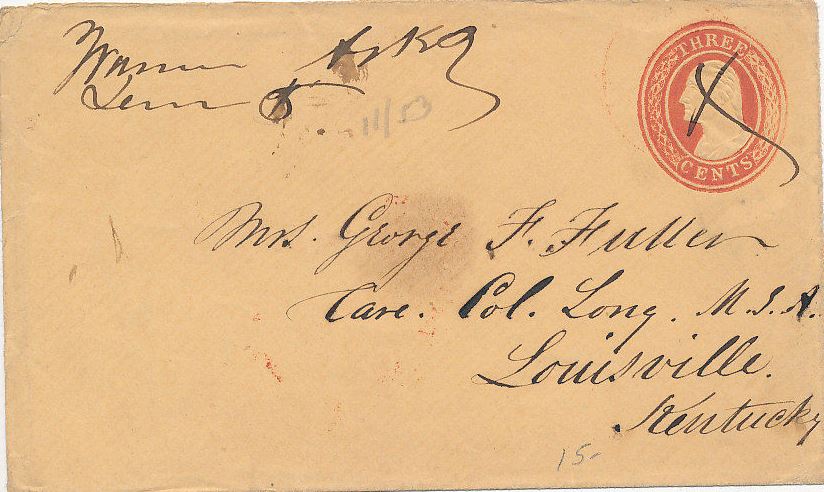 Warren Arks
THREE
CENTS
11/53
Mrs. George F. Fuller
Care. Col. Long. M.S.A.
Louisville.
Kentucky
15-